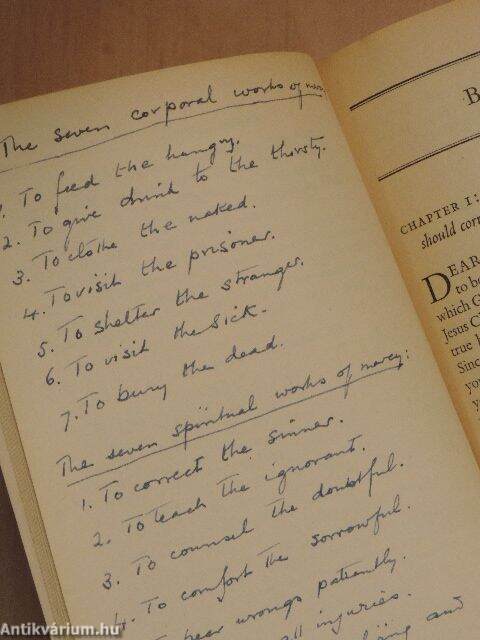 The seven corporal works of mercy:
1. To feed the hungry.
2. To give drink to the thirsty.
3. To clothe the naked.
4. To visit the prisoner.
5. To shelter the stranger.
6. To visit the sick.
7. To bury the dead.
The seven spiritual works of mercy:
1. To correct the sinner.
2. To teach the ignorant.
3. To counsel the doubtful.
4. To comfort the sorrowful.
bear wrongs patiently.
all injuries.
and
B
CHAPTER 1:
should corr
DEAR
to be
which G
Jesus C
true
Sinc
you
you
an
Antikvárium.hu